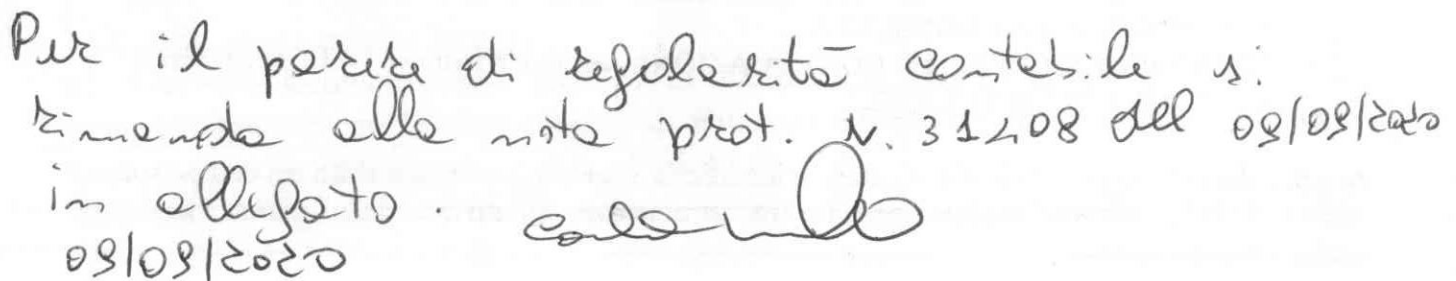 Per il parere di regolarità contabile si
rimanda alla nota prot. N. 31208 del 09/09/2020
in allegato.
09/09/2020